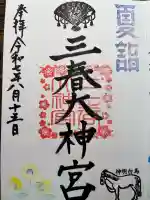 夏詣
三春大神宮
奉拝 令和七年八月十三日
神明台馬